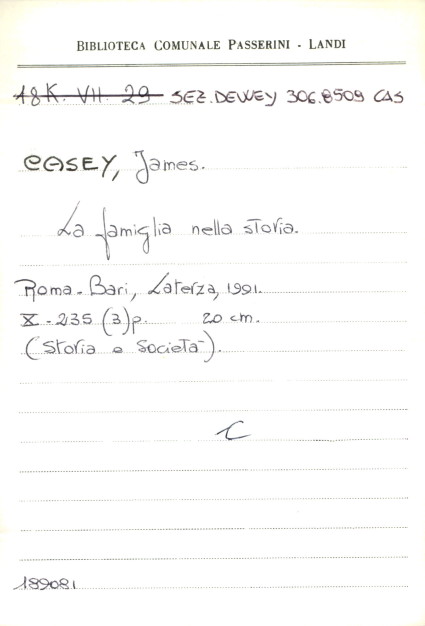 BIBLIOTECA COMUNALE PASSERINI - LANDI
18K. VII. 29 SEZ. DEWEY 306.8509 CAS
CASEY, James.
La famiglia nella storia.
Roma - Bari, Laterza, 1991.
X - 235 (3) p. 20 cm.
(Storia e Società).
C
189081